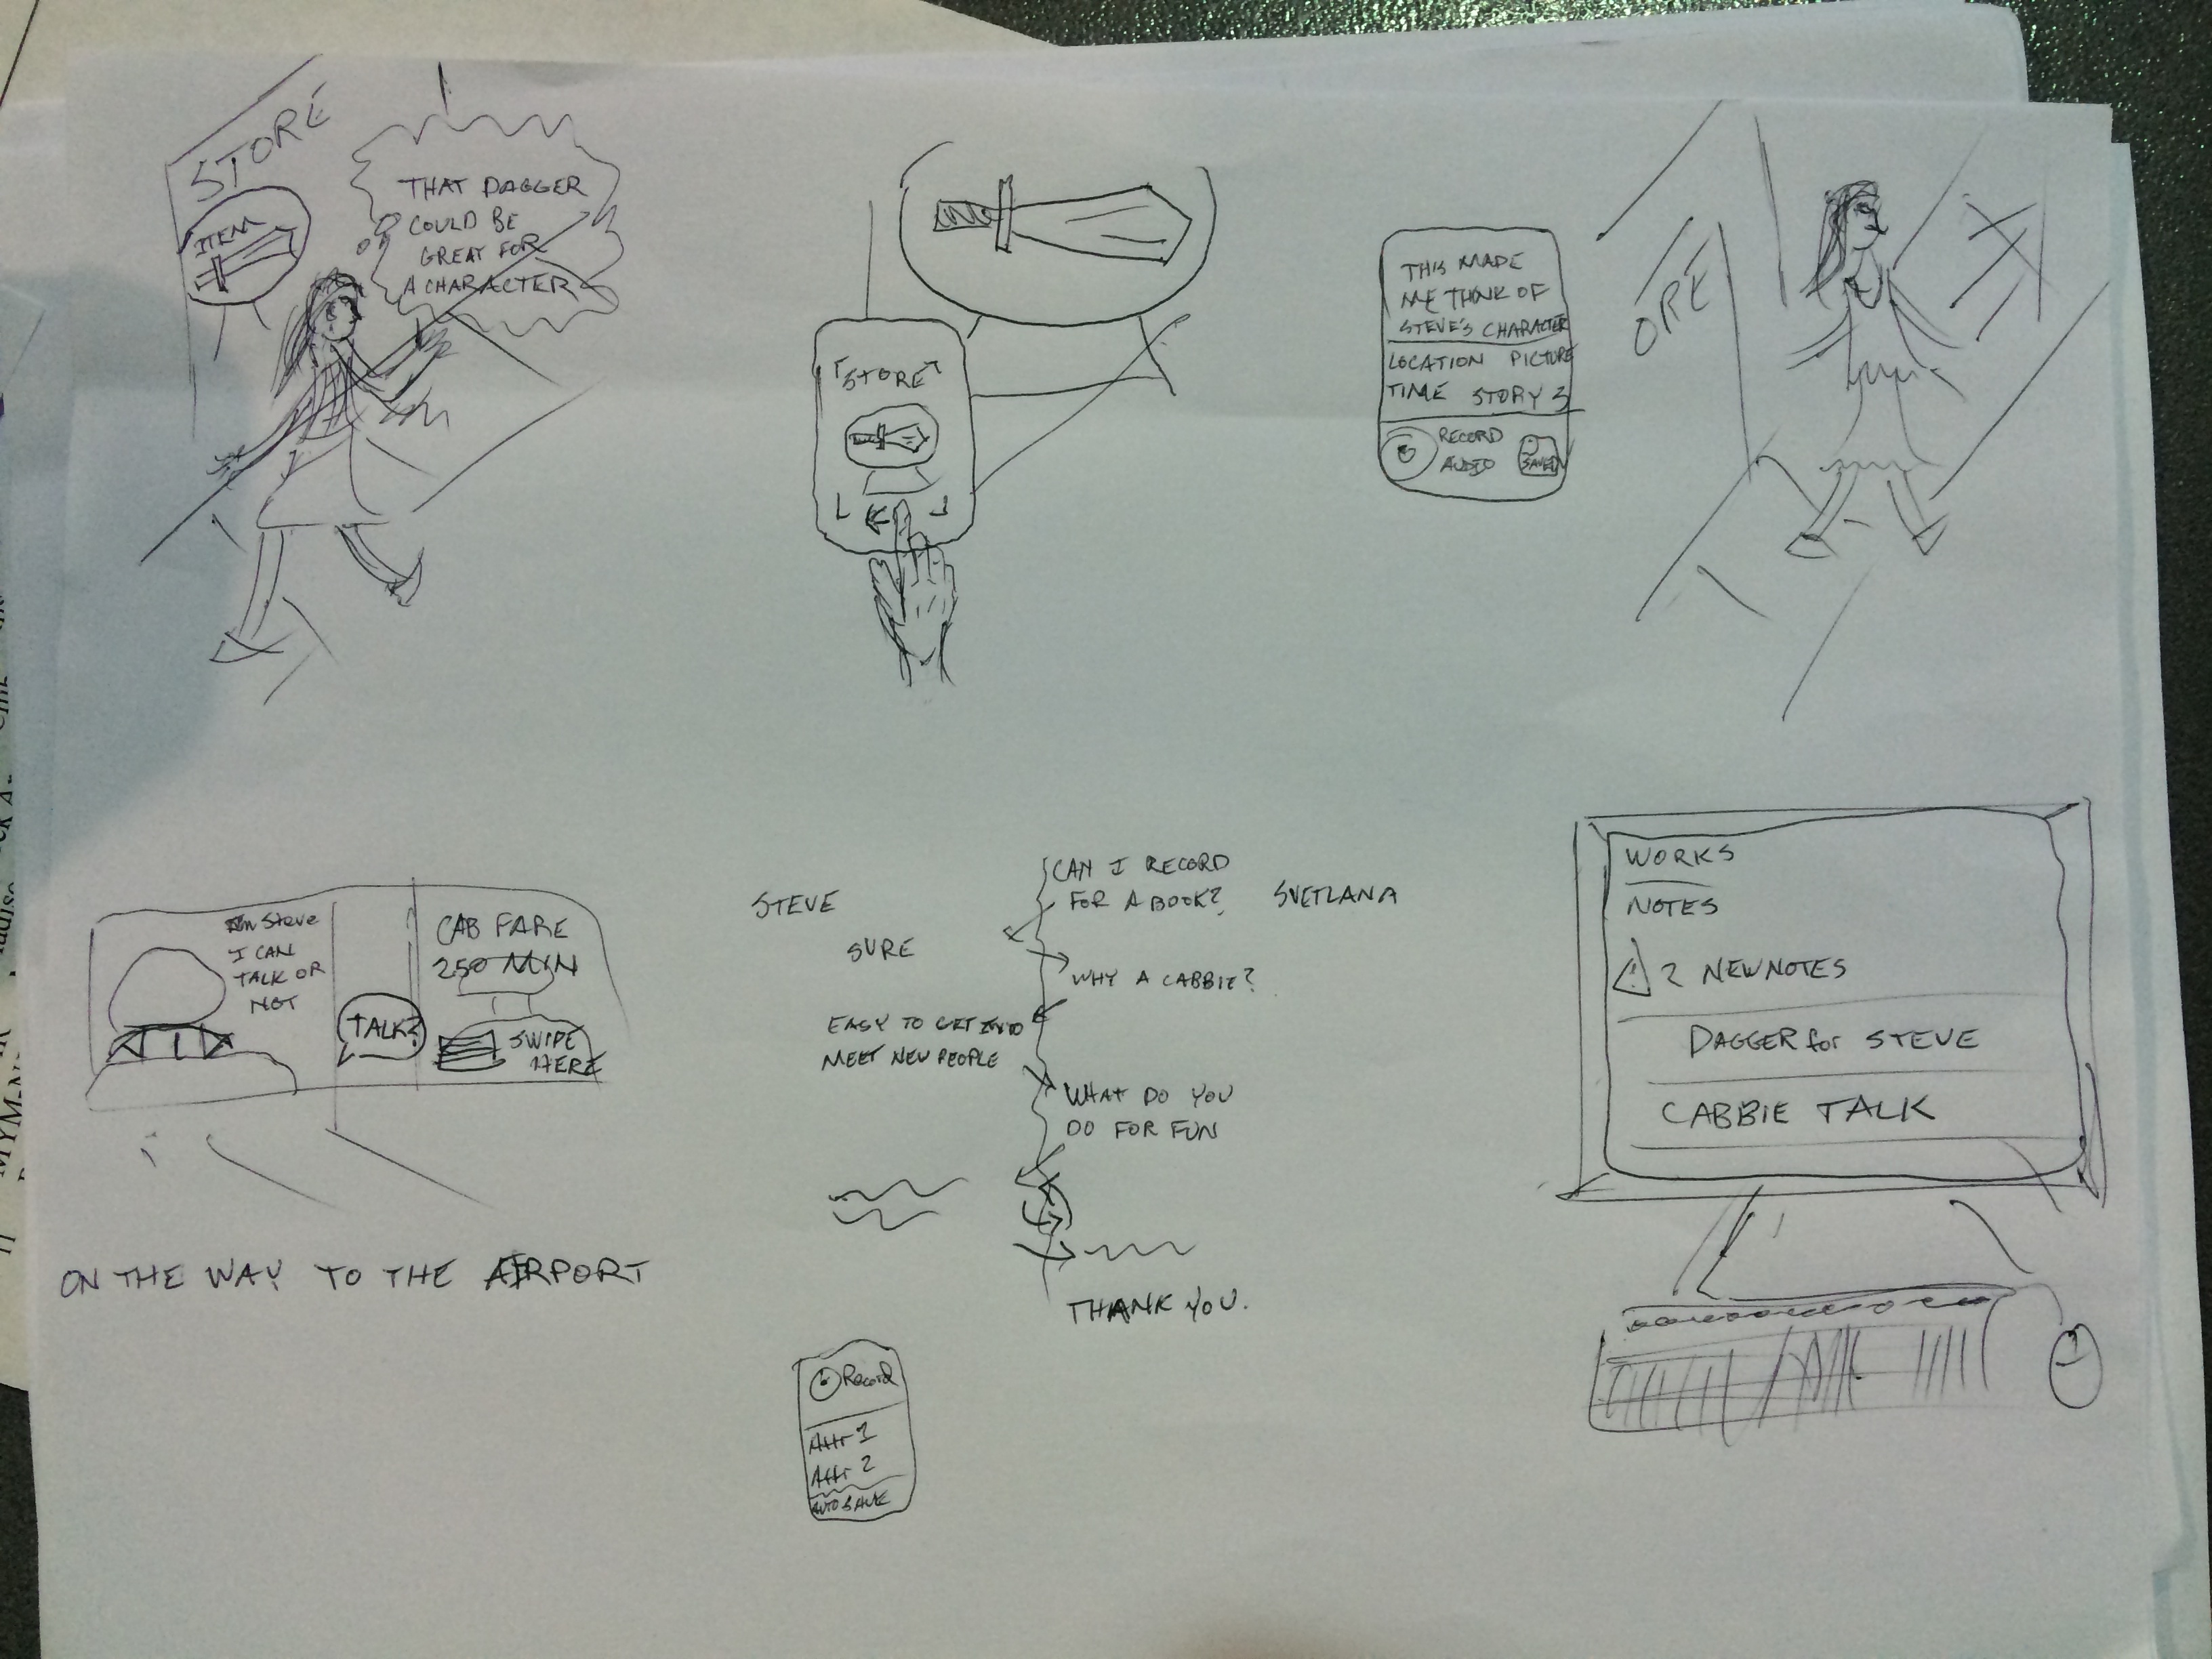 STORE
ITEM
THAT DAGGER
COULD BE
GREAT FOR
A CHARACTER
STORE
THIS MADE
ME THINK OF
STEVE'S CHARACTER
LOCATION PICTURE
TIME STORY 3
RECORD
AUDIO
SAVED
ORE
Steve
I CAN
TALK OR
NOT
TALK?
CAB FARE
250 MIN
SWIPE
HERE
ON THE WAY TO THE AIRPORT
STEVE
SVETLANA
CAN I RECORD
FOR A BOOK?
SURE
WHY A CABBIE?
EASY TO GET INTO
MEET NEW PEOPLE
WHAT DO YOU
DO FOR FUN
THANK YOU.
Record
Attr 1
Attr 2
AUTO SAVE
WORKS
NOTES
! 2 NEW NOTES
DAGGER for STEVE
CABBIE TALK